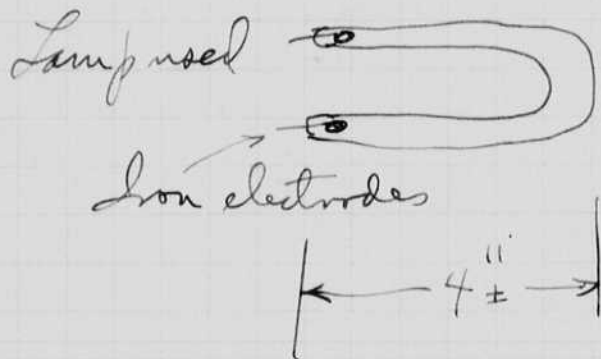 Lamp used
Iron electrodes
4" ±